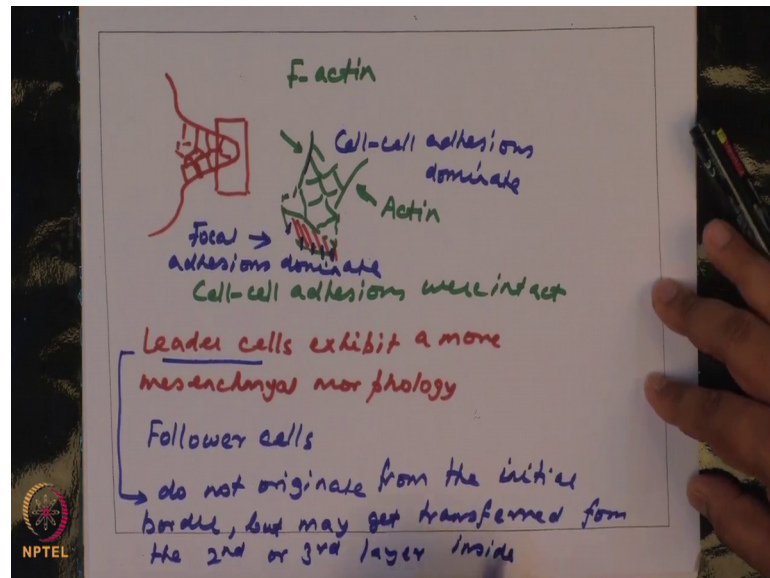 F-actin
Cell-cell adhesions
dominate
Actin
Focal →
adhesions dominate
Cell-cell adhesions were intact
Leader cells exhibit a more
mesenchymal morphology
Follower cells
do not originate from the initial
border, but may get transferred from
the 2nd or 3rd layer inside
NPTEL